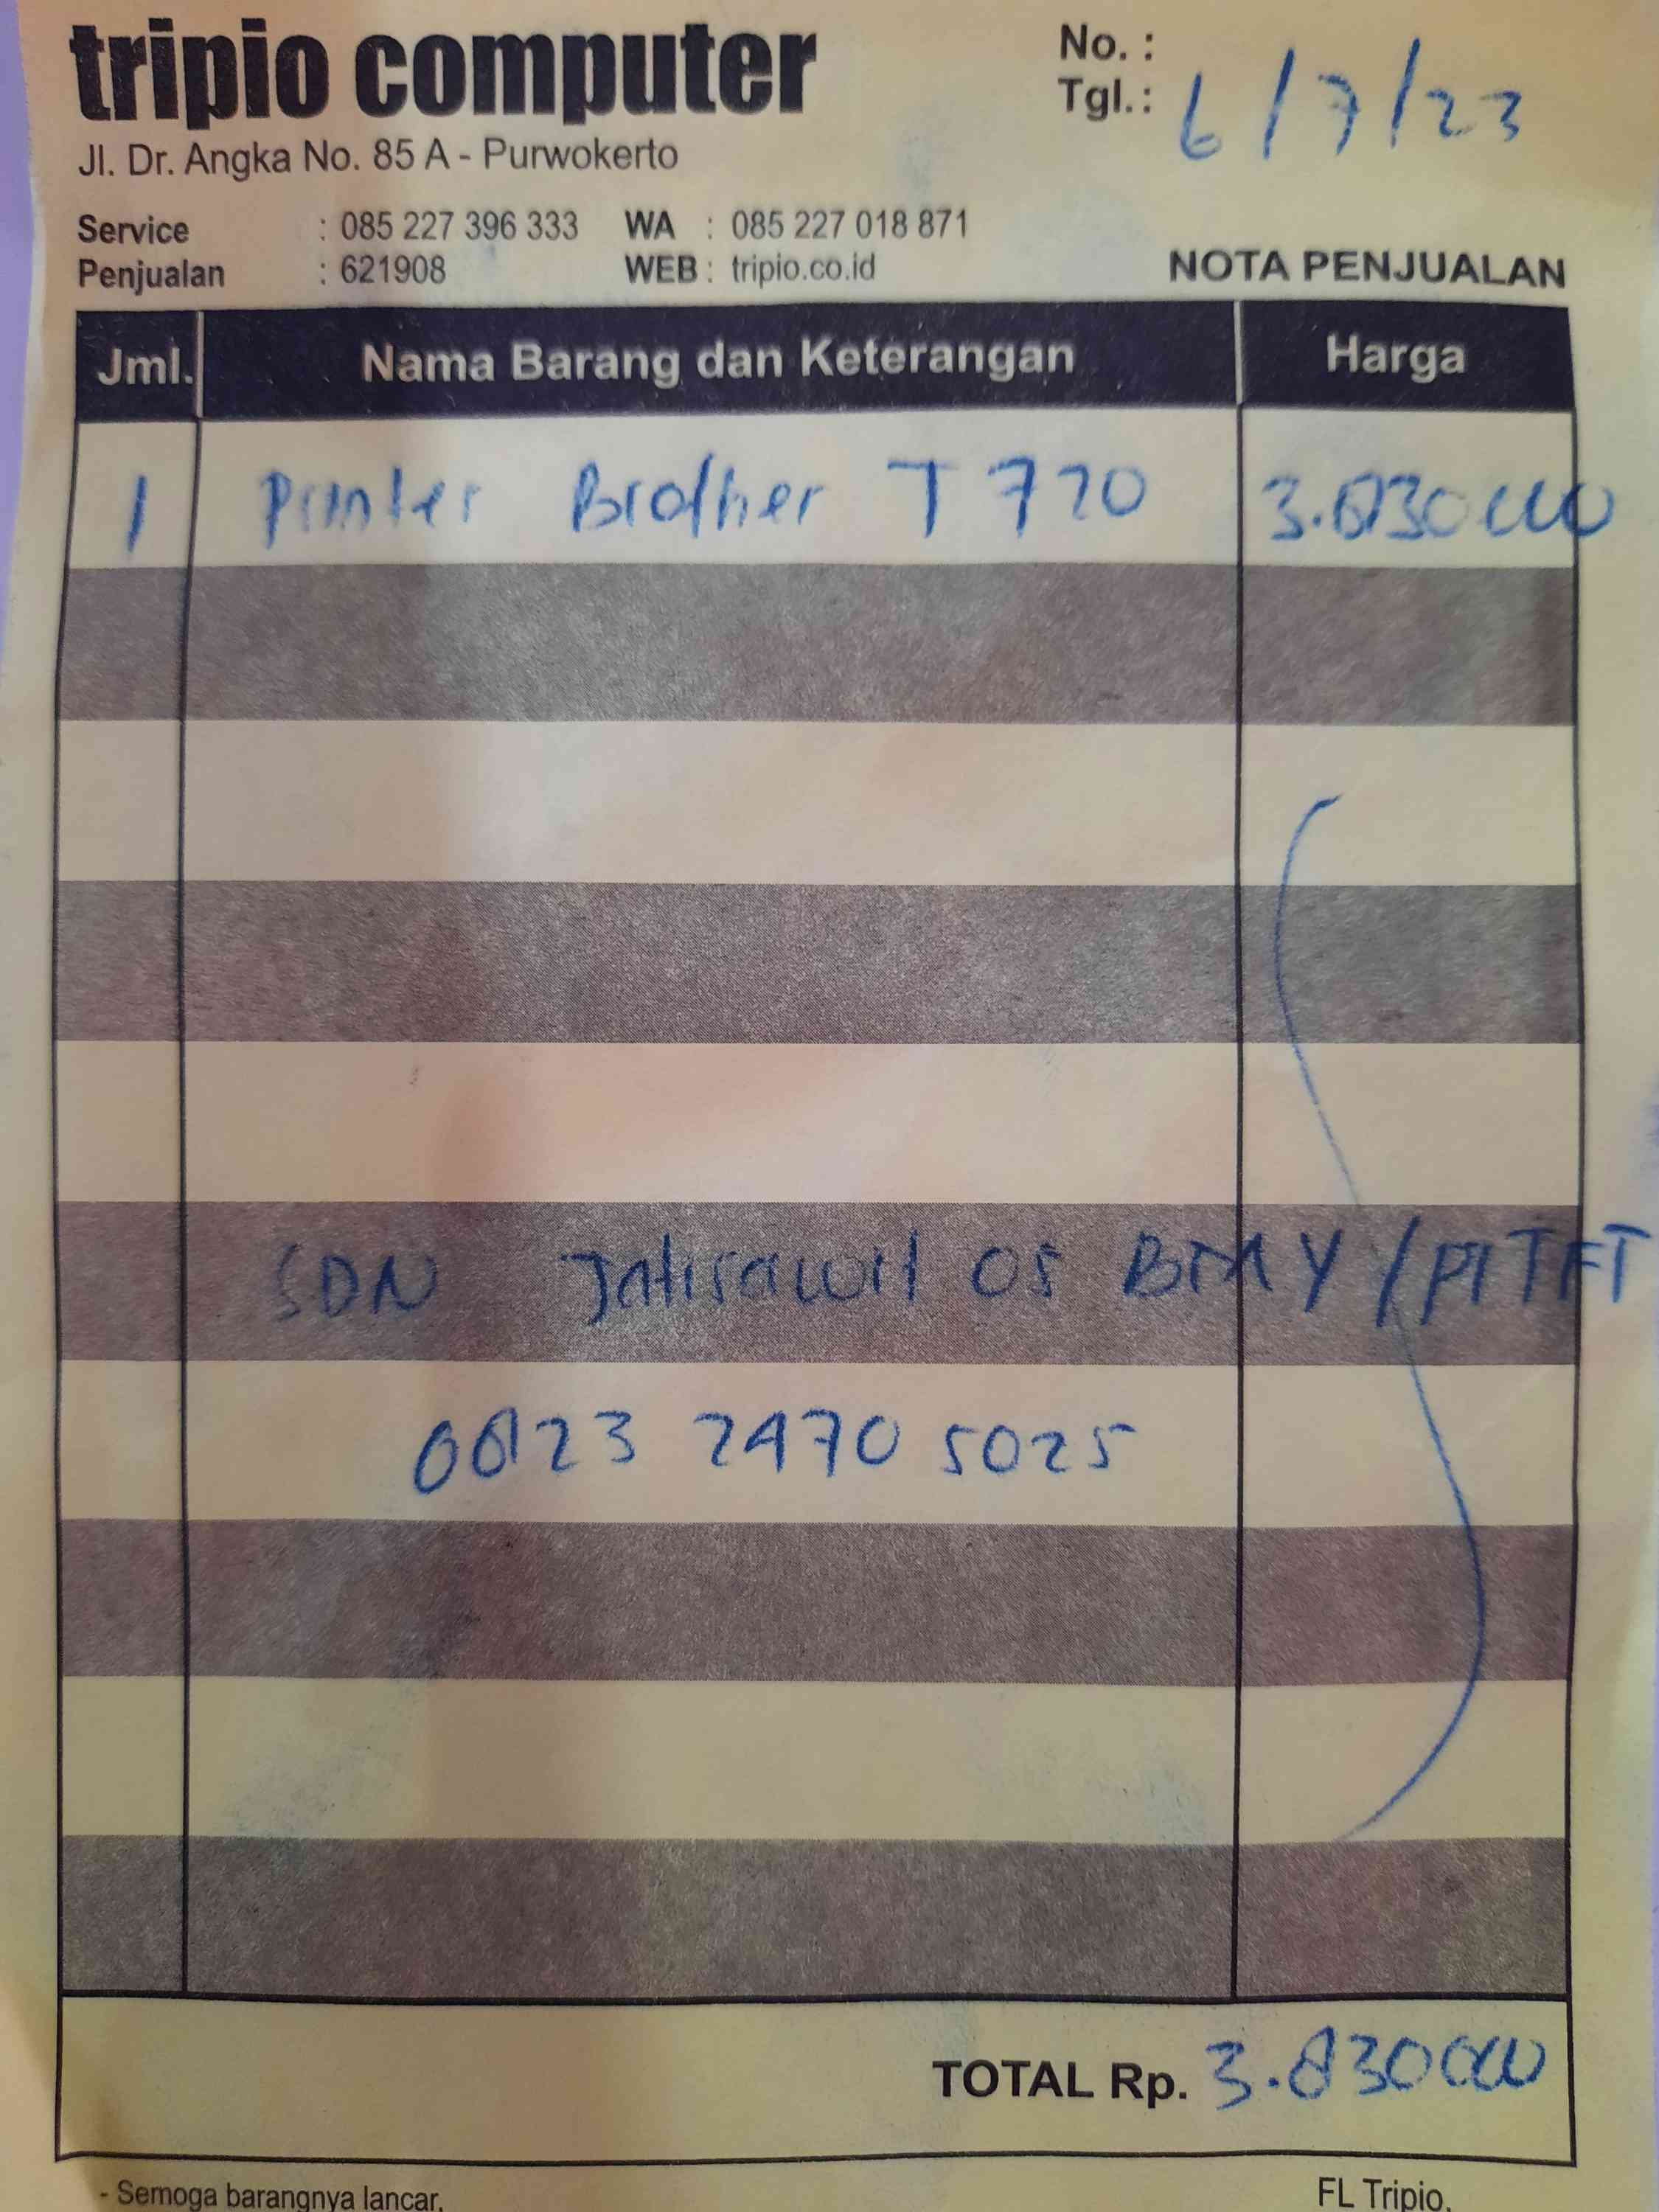 tripio computer
No. :
Tgl. : 6/7/23
Jl. Dr. Angka No. 85 A - Purwokerto
Service : 085 227 396 333 WA : 085 227 018 871
Penjualan : 621908 WEB : tripio.co.id
NOTA PENJUALAN
Jml. Nama Barang dan Keterangan Harga
1 Printer Brother T 720 3.830000
SDN Jatisawit 05 /
0823 2470 5025
TOTAL Rp. 3.830000
- Semoga barangnya lancar. FL Tripio,